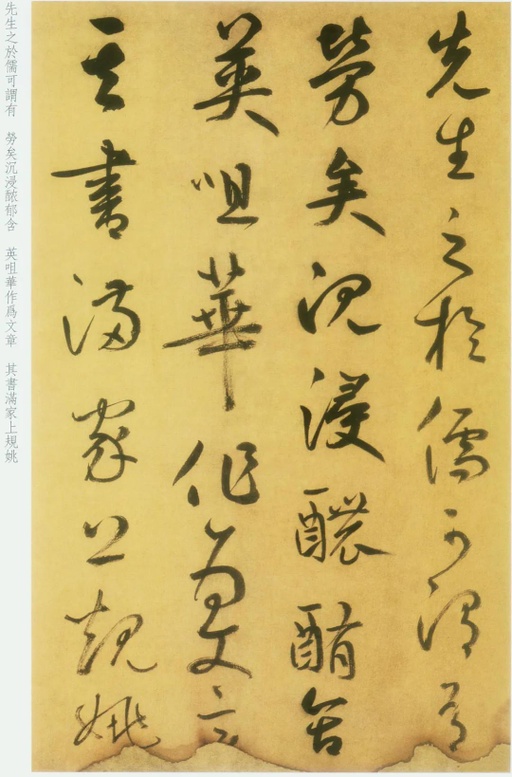 先生之於儒可謂有
勞矣沉浸醲郁含
英咀華作爲文章
其書滿家上規姚
先生之於儒可謂有　勞矣沉浸醲郁含　英咀華作爲文章　其書滿家上規姚